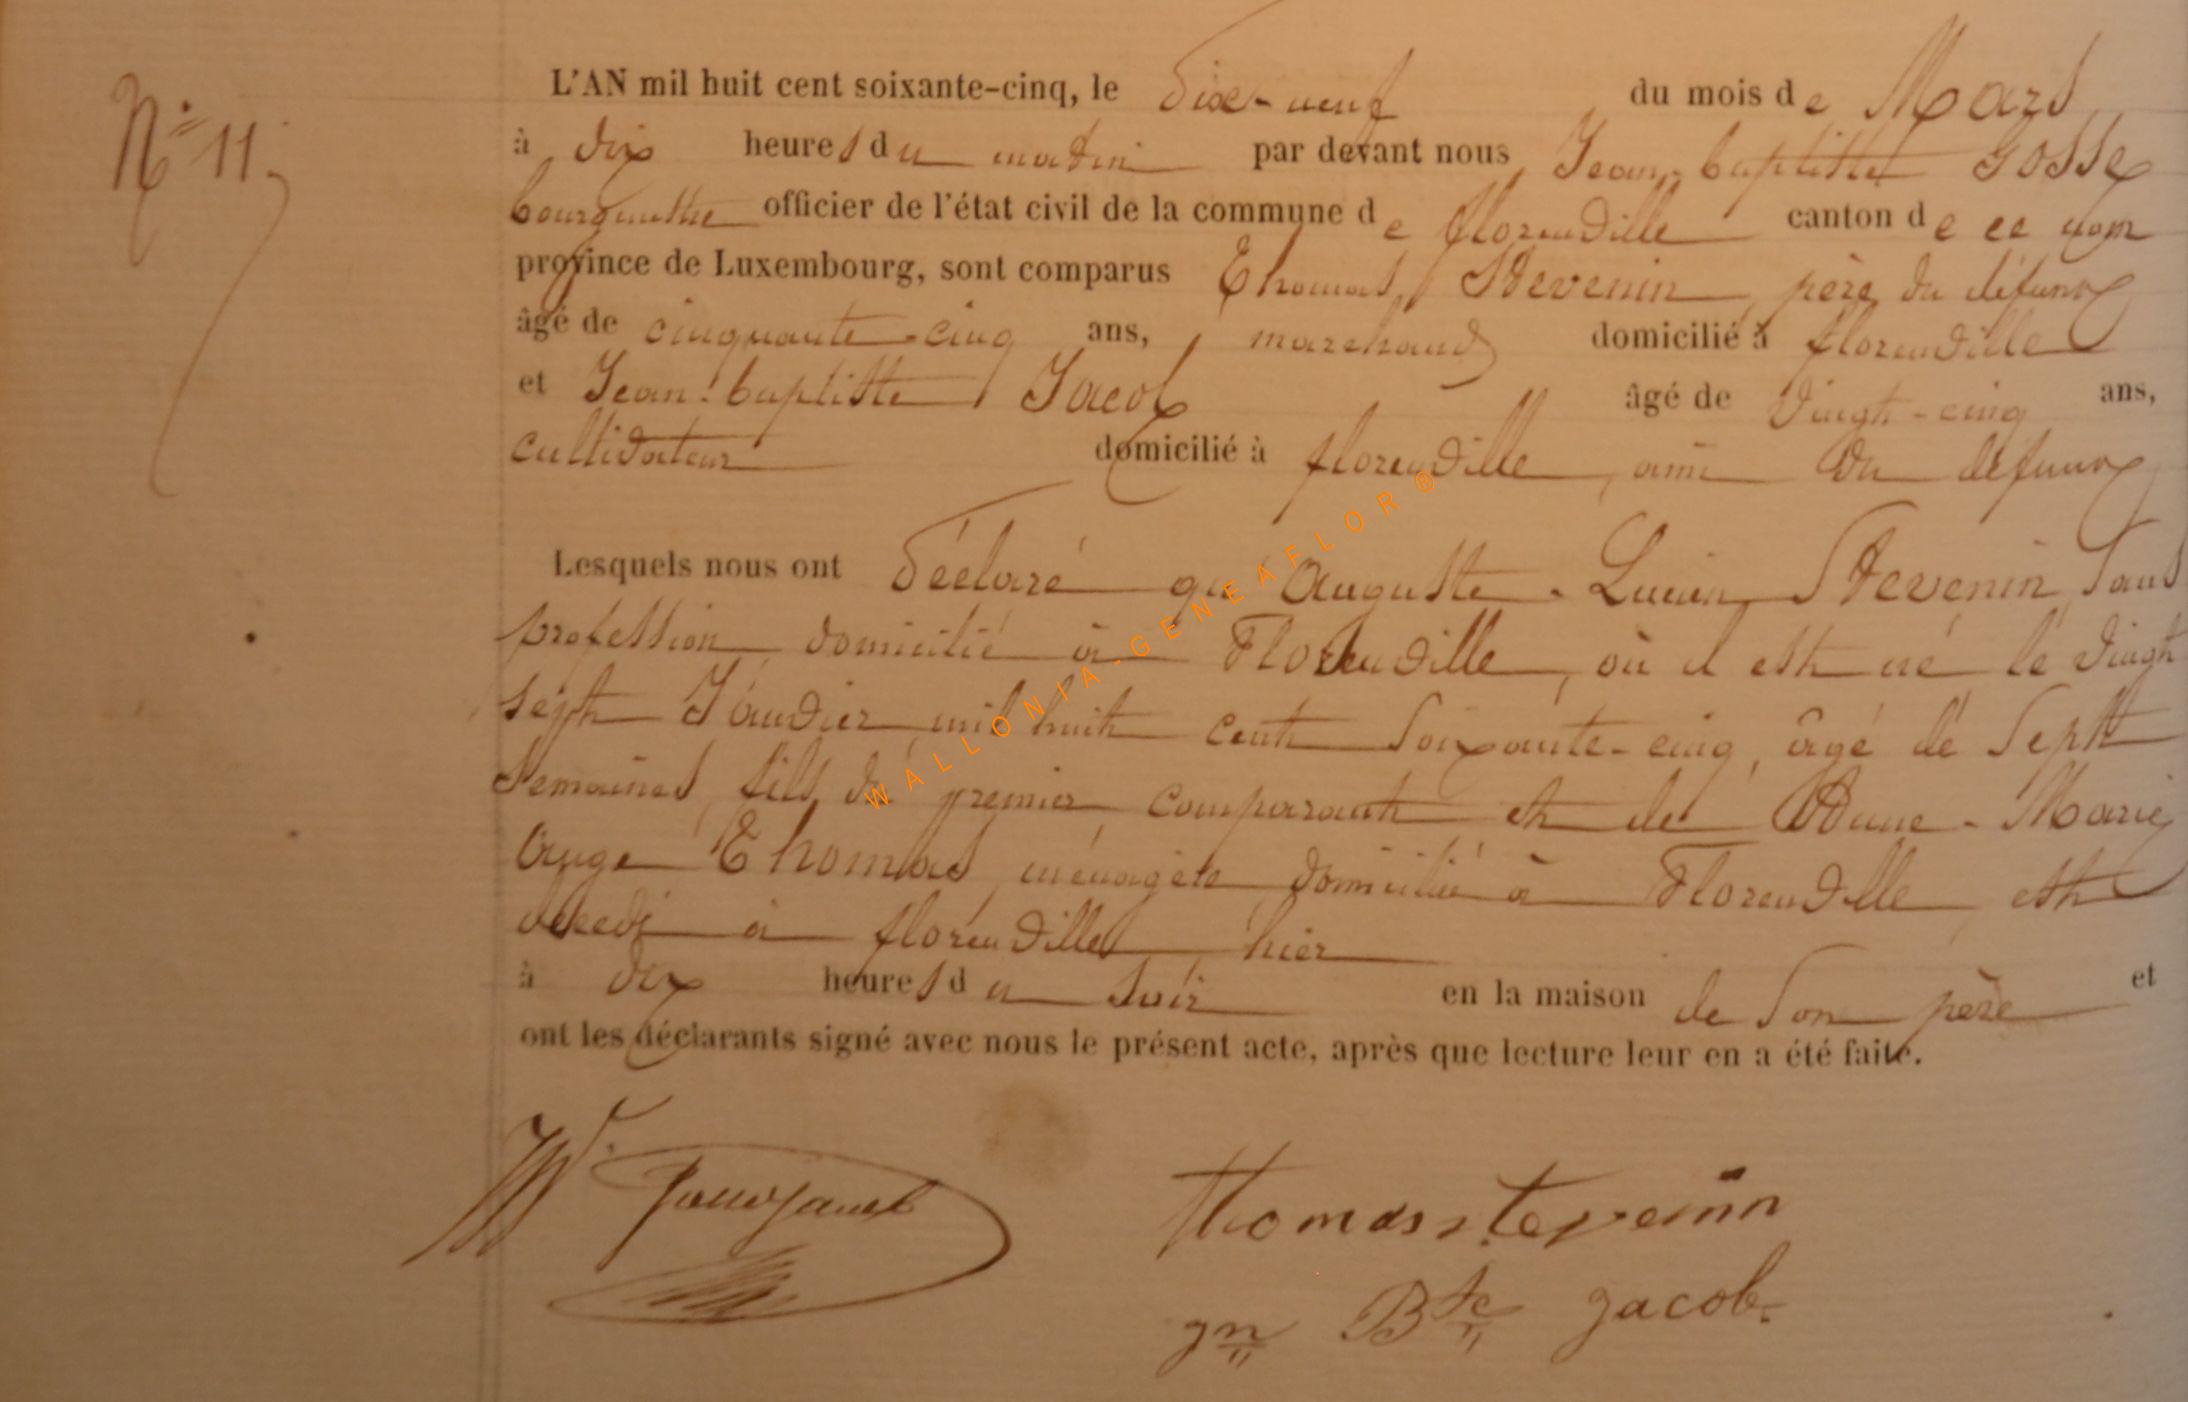 N° 11.
L'AN mil huit cent soixante-cinq, le dix-neuf du mois de Mars
à dix heures du matin par devant nous Jean-baptiste Gosse
bourgmestre officier de l'état civil de la commune de florenville canton de ce nom
province de Luxembourg, sont comparus Thomas Stevenin, père du défunt
âgé de cinquante-cinq ans, marchand domicilié à florenville
et Jean-baptiste Jacob âgé de vingt-cinq ans,
cultivateur domicilié à florenville, ami du défunt
Lesquels nous ont déclaré que Auguste-Lucien Stevenin, sans
profession domicilié à Florenville, où il est né le vingt
sept Janvier mil huit cent soixante-cinq, âgé de sept
semaines, fils du premier comparant et de Anne-Marie
Ange Thomas, ménagère domiciliée à Florenville, est
décédé à florenville hier
à dix heures du soir en la maison de son père et
ont les déclarants signé avec nous le présent acte, après que lecture leur en a été faite.
Thomas stevenin
jn Bte jacob
WALLONIA-GENEAFLOR ®